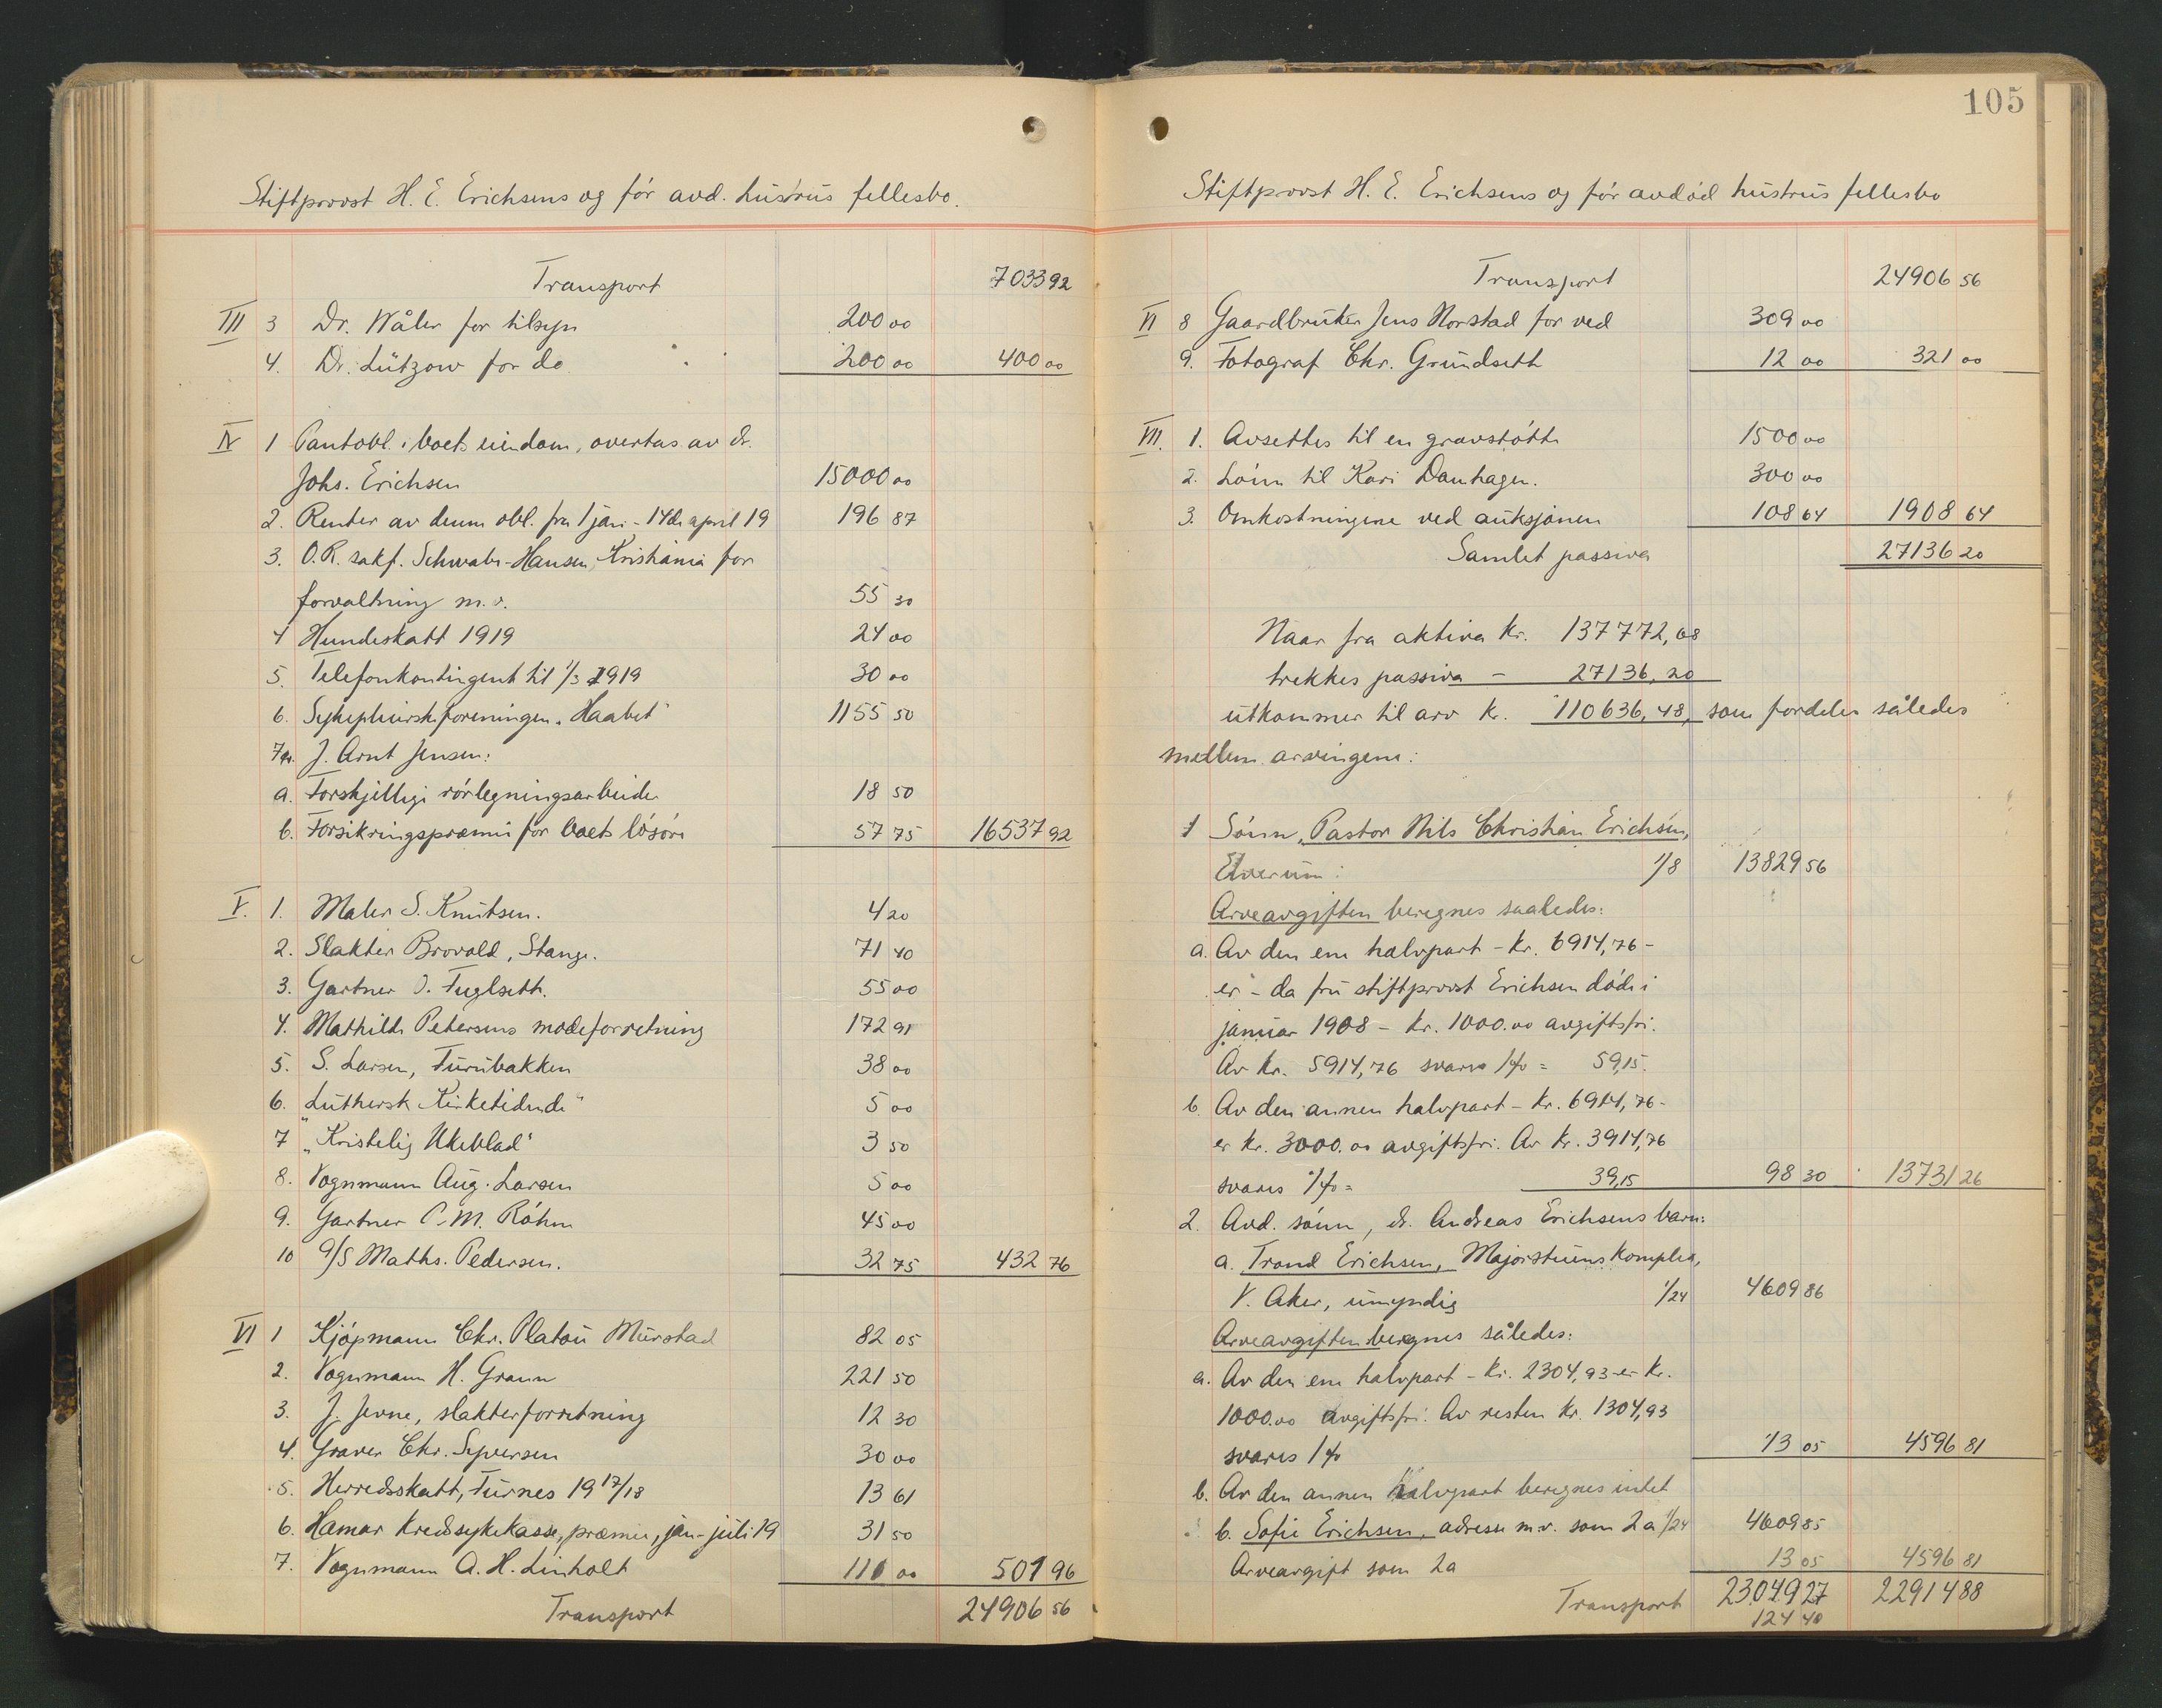 Stiftprovst H. E. Erichsens og før avd. hustrus fellesbo.
Transport 7033 92
III 3 Dr. Wåler for tilsyn 200 00
4. Dr. Lützow for do. 200 00 400 00
IV 1 Pantobl. i boets eiendom, overtas av dr.
Johs. Erichsen 15000 00
2. Renter av denne obl. fra 1 jan. - 14de april 19 196 87
3. O.R. sakf. Schwabe-Hansen, Kristiania for
forvaltning m.v. 55 30
4 Hundeskatt 1919 24 00
5. Telefonkontingent til 1/3 1919 30 00
6. Sykepleierskeforeningen "Haabet" 1155 50
7. J. Arnt Jensen:
a. Forskjellige rørlegningsarbeider 18 50
b. Forsikringspræmie for boets løsøre 57 75 16537 92
V. 1. Maler S. Knutsen. 4 20
2. Slakter Brovold, Stange. 71 40
3. Gartner O. Fuglseth. 55 00
4. Mathilde Petersens modeforretning 172 91
5. S. Larsen, Furubakken 38 00
6. "Luthersk Kirketidende" 5 00
7 "Kristelig Ukeblad" 3 50
8. Vognmann Aug. Larsen 5 00
9. Gartner C. M. Røhm 45 00
10 A/S Maths. Pedersen. 32 75 432 76
VI 1 Kjøpmann Chr. Platou Murstad 82 05
2. Vognmann H. Graun 221 50
3. J. Jevne, slakterforretning 12 30
4. Graver Chr. Syversen 30 00
5. Herredsskatt, Furnes 19 17/18 13 61
6. Hamar Kredssykekasse, præmie, jan-juli 19 31 50
7. Vognmann A. H. Linholt 111 00 501 96
Transport 24906 56
105
Stiftprovst H. E. Erichsens og før avdød hustrus fellesbo
Transport 24906 56
VI 8 Gaardbruker Jens Norstad for ved 309 00
9. Fotograf Chr. Grundseth 12 00 321 00
VII. 1. Avsettes til en gravstøtte 1500 00
2. Lønn til Kari Danhagen. 300 00
3. Omkostningene ved auksjonen 108 64 1908 64
Samlet passiva 27136 20
Naar fra aktiva kr. 137772,68
trekkes passiva - 27136,20
utkommer til arv kr. 110636,48, som fordeles således
mellem arvingene:
1 Sønn, Pastor Nils Christian Erichsen,
Elverum: 1/8 13829 56
Arveavgiften beregnes saaledes:
a. Av den ene halvpart - kr. 6914,76 -
er - da fru stiftprovst Erichsen døde i
januar 1908 - kr. 1000.00 avgiftsfri.
Av kr. 5914,76 svares 1% = 59,15.
b. Av den annen halvpart - kr. 6914,76 -
er kr. 3000.00 avgiftsfri. Av kr. 3914,76
svares 1% = 39,15 98 30 13731 26
2. Avd. sønn, dr. Andreas Erichsens barn:
a. Trond Erichsen, Majorstuens kompleks,
V. Aker, umyndig 1/24 4609 86
Arveavgiften beregnes således:
a. Av den ene halvpart - kr. 2304,93 - er kr.
1000.00 avgiftsfri. Av resten kr. 1304,93
svares 1% 13 05 4596 81
b. Av den annen halvpart beregnes intet
b. Sofie Erichsen, adresse m.v. som 2a 1/24 4609 85
Arveavgift som 2a 13 05 4596 81
Transport 23049 27 22914 88
124 40